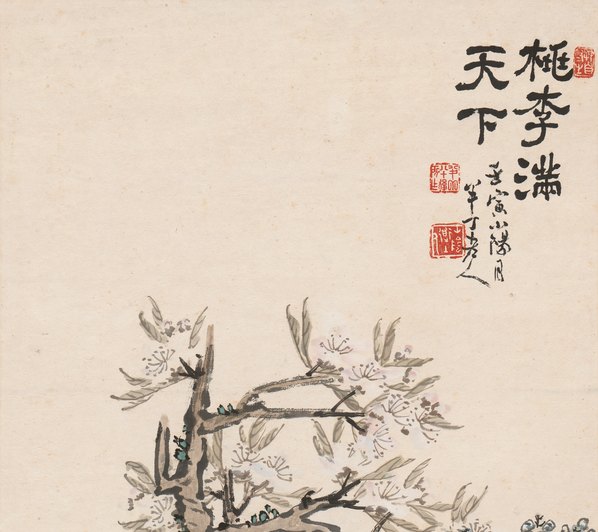 桃李滿
天下
壬寅小陽月
半丁老人